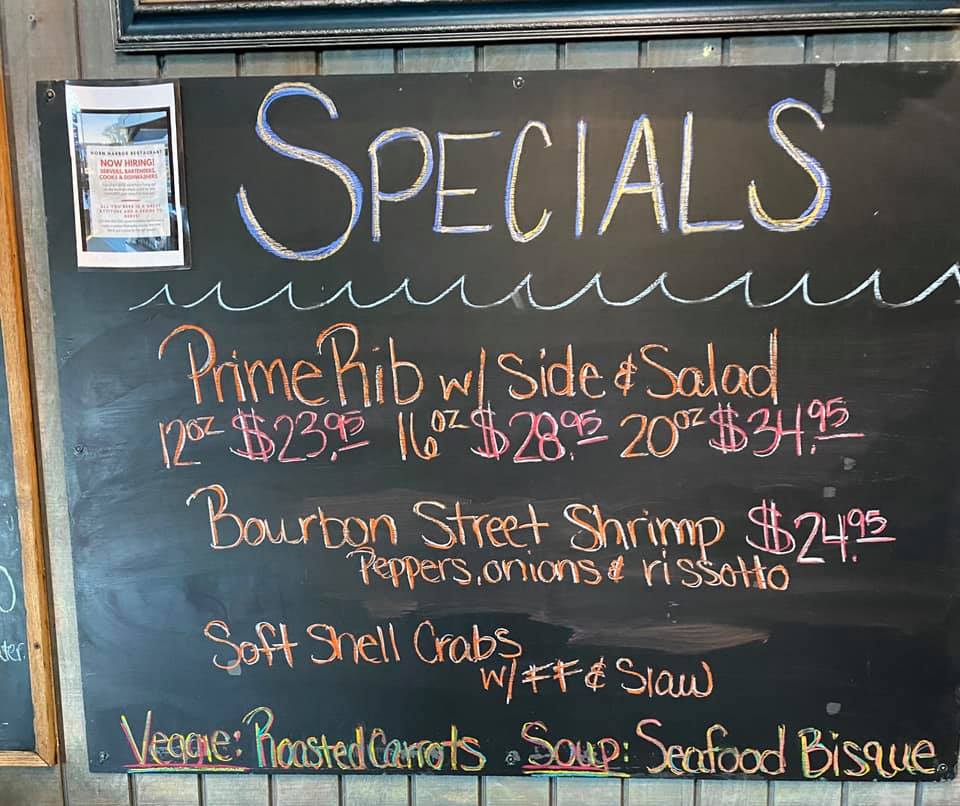 HORN HARBOR RESTAURANT
NOW HIRING!
SERVERS, BARTENDERS,
COOKS & DISHWASHERS
ALL YOU NEED IS A GREAT
ATTITUDE AND A DESIRE TO
SERVE!
SPECIALS
Prime Rib w/ Side & Salad
12oz $23.95 16oz $28.95 20oz $34.95
Bourbon Street Shrimp $24.95
Peppers, onions & rissotto
Soft Shell Crabs
w/ FF & Slaw
Veggie: Roasted Carrots Soup: Seafood Bisque